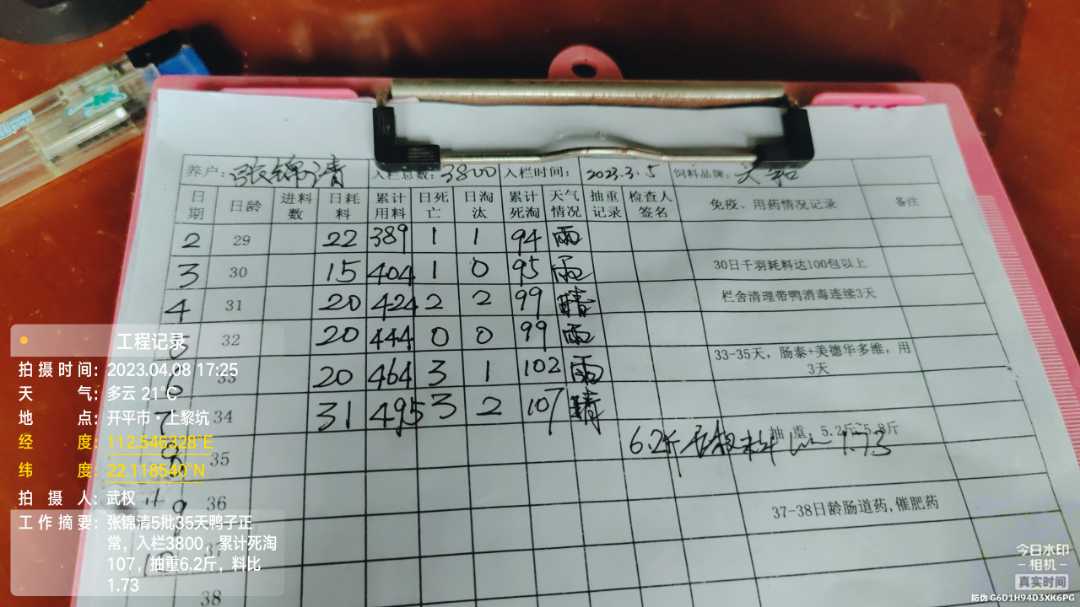 养户:张锦清 入栏总数:3800 入栏时间:2023.3.5 饲料品牌:大和
日期 日龄 进料数 日耗料 累计用料 日死亡 日淘汰 累计死淘 天气情况 抽重记录 检查人签名 免疫、用药情况记录 备注
2 29 22 389 1 1 94 雨
3 30 15 404 1 0 95 雨 30日千羽耗料达100包以上
4 31 20 424 2 2 99 晴 栏舍清理带鸭消毒连续3天
5 32 20 444 0 0 99 雨
33 20 464 3 1 102 雨 33-35天，肠泰+美德华多维，用3天
34 31 495 3 2 107 晴 抽重 5.2斤~5.8斤
35 6.2斤 1.73
36 37-38日龄肠道药,催肥药
38
工程记录
拍摄时间:2023.04.08 17:25
天气:多云 21℃
地点:开平市·上黎坑
经度:112.546328°E
纬度:22.118540°N
拍摄人:武权
工作摘要:张锦清5批35天鸭子正
常，入栏3800，累计死淘
107，抽重6.2斤，料比
1.73
今日水印
-相机-
真实时间
防伪 G6D1H94D3XK6PG